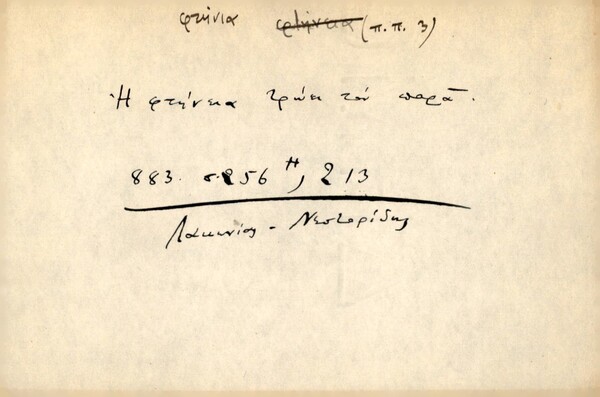 φτήνια φτήνεια (π.π. 3)
Ἡ φτήνεια τρώει τὸν παρᾶ.
883. σ. 256 Η, 213
Λακωνίας - Νεστορίδης